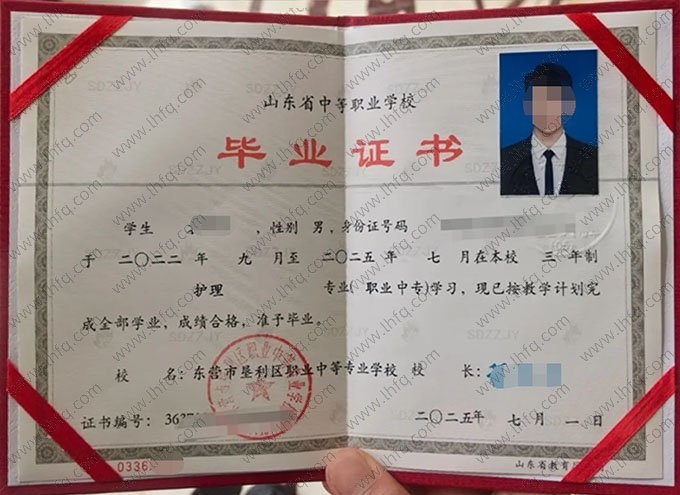 山东省中等职业学校
毕业证书
学生 ，性别 男，身份证号码
于 二〇二二 年 九 月至 二〇二五 年 七 月在本校 三 年制
护理 专业( 职业中专)学习，现已按教学计划完
成全部学业，成绩合格，准予毕业。
校 名：东营市垦利区职业中等专业学校 校 长：
证书编号：3637
二〇二五年 七月 一日
0336
山东省教育
SDZZJY
www.lhfq.com